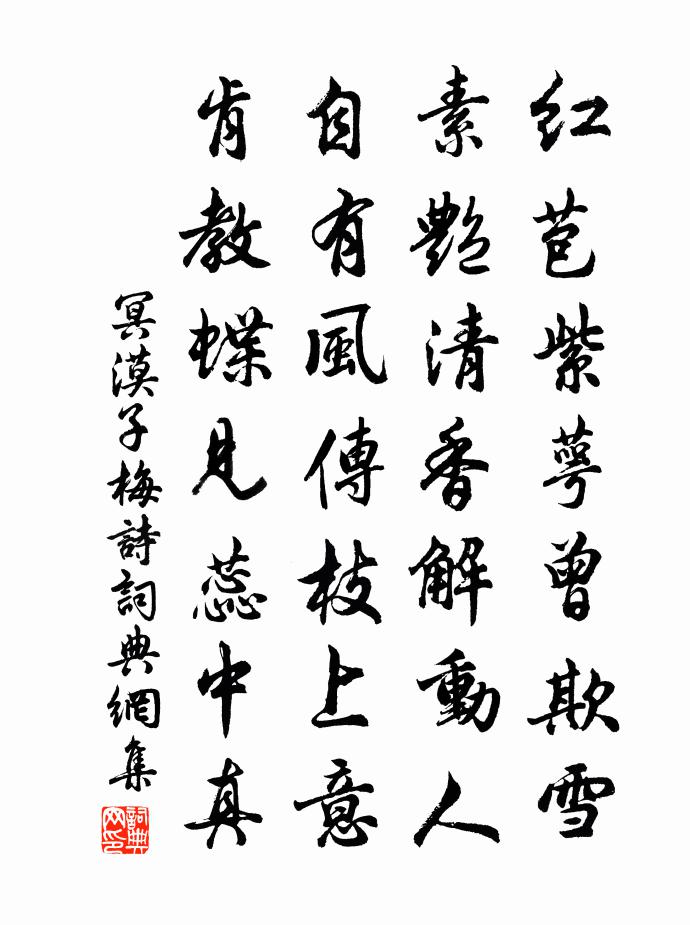 紅苞紫萼曾欺雪
素艷清香解動人
自有風傳枝上意
肯教蝶見蕊中真
冥漠子梅詩詞典網集
詞典網印